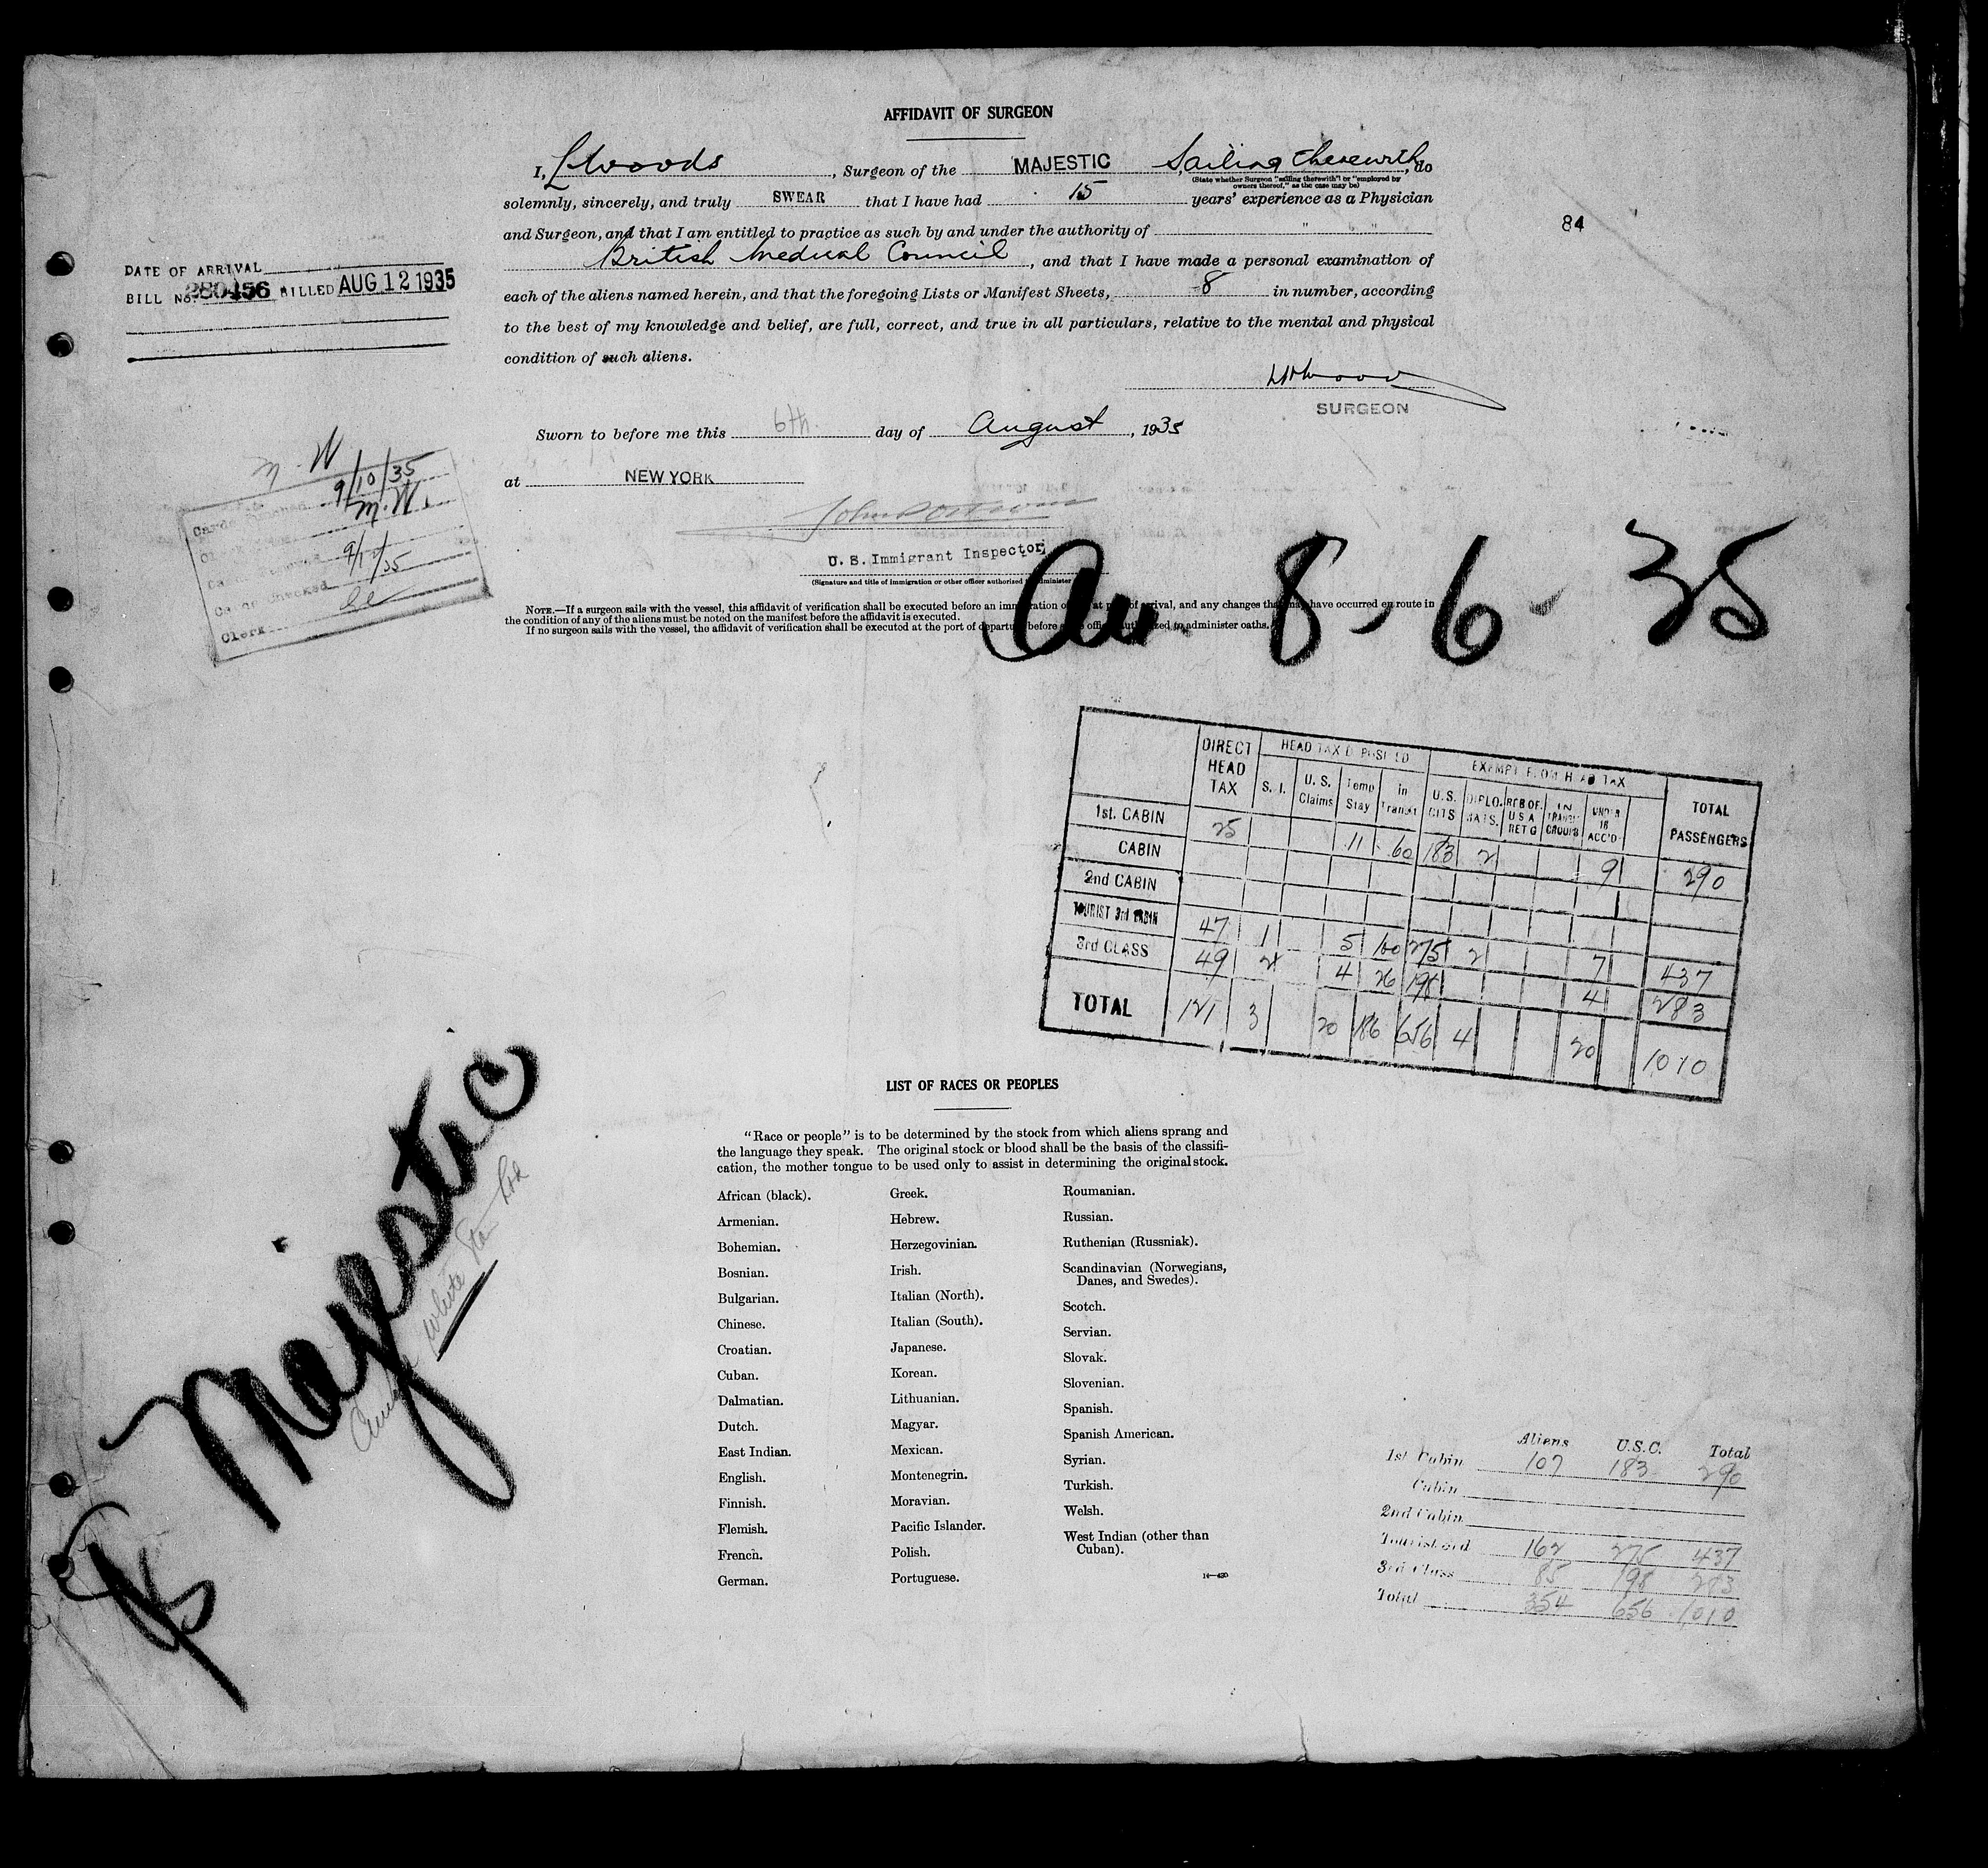 AFFIDAVIT OF SURGEON
I, Woods, Surgeon of the MAJESTIC Sailing therewith, do
(State whether Surgeon "sailing therewith" or "employed by owners thereof," as the case may be)
solemnly, sincerely, and truly SWEAR that I have had 15 years' experience as a Physician
and Surgeon, and that I am entitled to practice as such by and under the authority of " "
British Medical Council, and that I have made a personal examination of
each of the aliens named herein, and that the foregoing Lists or Manifest Sheets, 8 in number, according
to the best of my knowledge and belief, are full, correct, and true in all particulars, relative to the mental and physical
condition of such aliens.
SURGEON
84
DATE OF ARRIVAL
BILL No. 280456 BILLED AUG 12 1935
Sworn to before me this 6th day of August, 1935
at NEW YORK
U. S. Immigrant Inspector
(Signature and title of immigration or other officer authorized to administer
M. W
9/10/35
M. W.
Checked
Clerk
NOTE.—If a surgeon sails with the vessel, this affidavit of verification shall be executed before an immigration officer at port of arrival, and any changes that may have occurred en route in
the condition of any of the aliens must be noted on the manifest before the affidavit is executed.
If no surgeon sails with the vessel, the affidavit of verification shall be executed at the port of departure before some officer authorized to administer oaths.
8-6-35
DIRECT HEAD TAX HEAD TAX DEPOSITED EXEMPT FROM HEAD TAX TOTAL PASSENGERS
S. I. U. S. Claims Temp Stay In Transit U.S. CITS DIPLO. MATS. RES OF U S A RET G IN TRANSIT GROUPS UNDER 16 ACC'D
1st. CABIN 25 11 60 183 2 9 290
CABIN
2nd CABIN
TOURIST 3rd CABIN 47 1 5 100 275 2 7 437
3rd CLASS 49 2 4 26 198 4 283
TOTAL 121 3 20 186 656 4 20 1010
LIST OF RACES OR PEOPLES
"Race or people" is to be determined by the stock from which aliens sprang and
the language they speak. The original stock or blood shall be the basis of the classifi-
cation, the mother tongue to be used only to assist in determining the original stock.
African (black).
Armenian.
Bohemian.
Bosnian.
Bulgarian.
Chinese.
Croatian.
Cuban.
Dalmatian.
Dutch.
East Indian.
English.
Finnish.
Flemish.
French.
German.
Greek.
Hebrew.
Herzegovinian.
Irish.
Italian (North).
Italian (South).
Japanese.
Korean.
Lithuanian.
Magyar.
Mexican.
Montenegrin.
Moravian.
Pacific Islander.
Polish.
Portuguese.
Roumanian.
Russian.
Ruthenian (Russniak).
Scandinavian (Norwegians,
Danes, and Swedes).
Scotch.
Servian.
Slovak.
Slovenian.
Spanish.
Spanish American.
Syrian.
Turkish.
Welsh.
West Indian (other than
Cuban).
14—430
Majestic
White Star
Aliens U.S.C. Total
1st Cabin 107 183 290
Cabin
2nd Cabin
Tourist 3rd 162 275 437
3rd Class 85 198 283
Total 354 656 1010